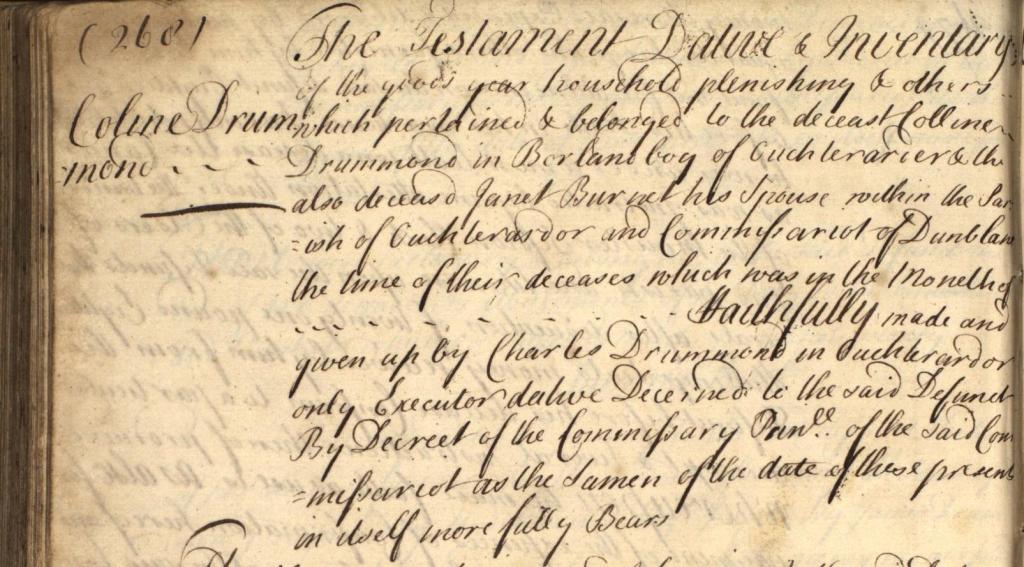 (268)
The Testament Dative & Inventary
of the goods gear household plenishing & others
Coline Drum
mond
which pertained & belonged to the deceast Colline
Drummond in Borlandbog of Ouchterarder & the
also deceasd Janet Burnet his Spouse within the Par
=ish of Ouchterardor and Commissariot of Dunblan
the time of their deceases which was in the Moneth of
ffaithfully made and
given up by Charles Drummond in Ouchterardor
only Executor dative Decerned to the said Defunct
By Decreet of the Commissary of the said Com
=missariot as the Samen of the date of these present
in itself more fully Bears